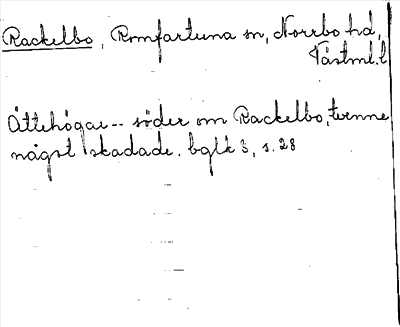 Rackelbo, Romfartuna sn, Norrbo hd,
Västml.l
Ättehögar -- söder om Rackelbo, tvenne
något skadade. bglk 3, s. 28